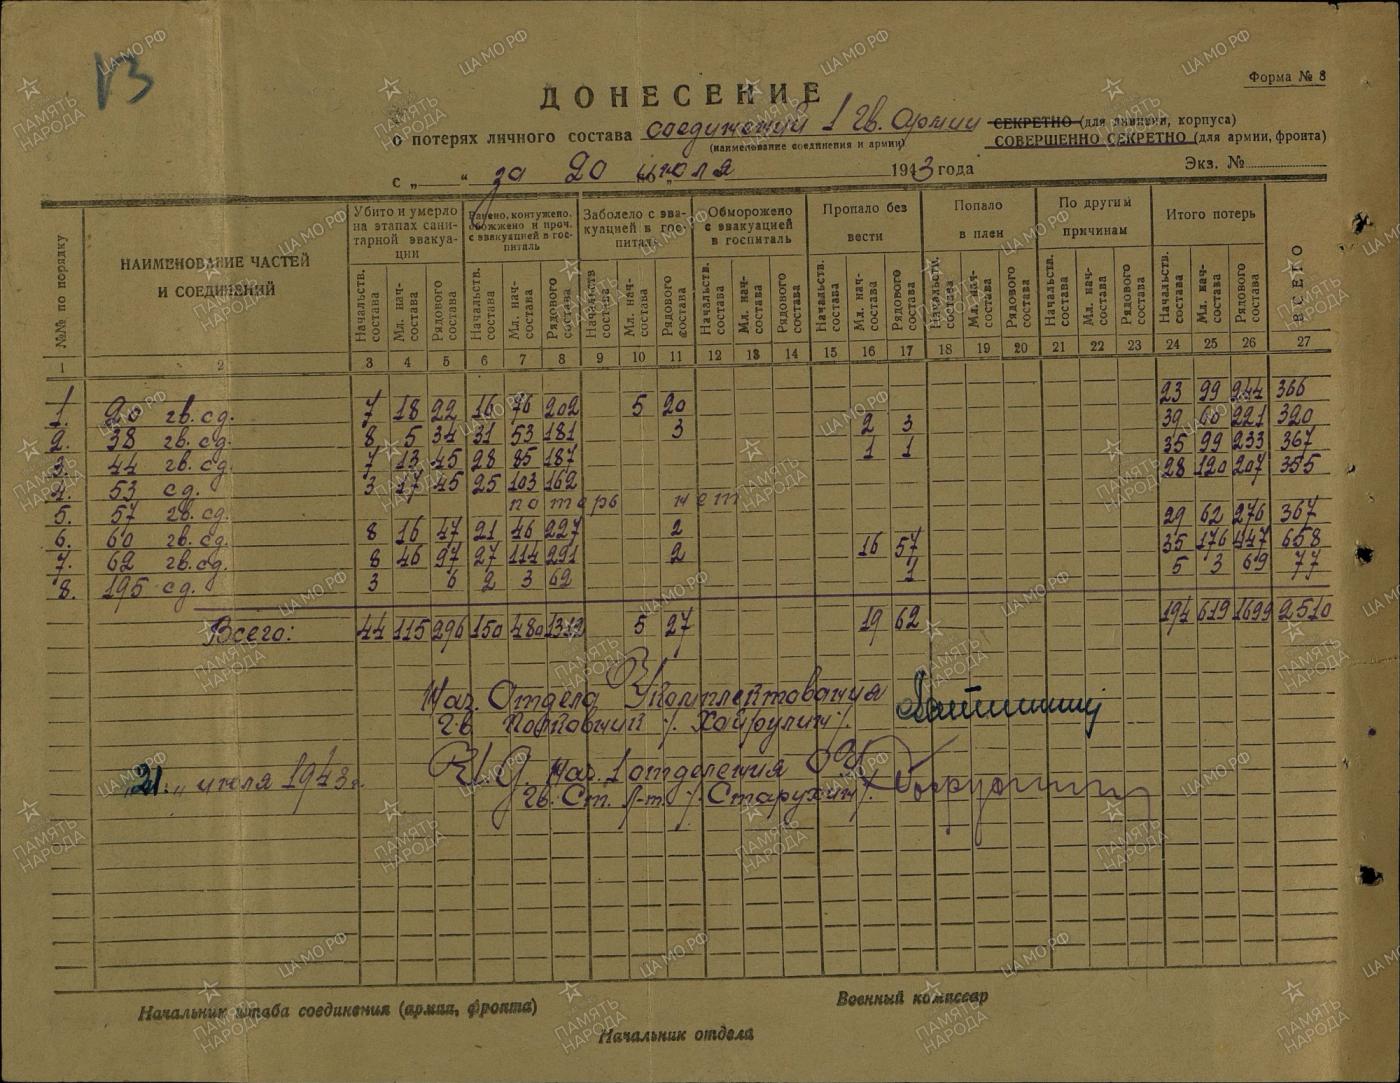 13
Форма № 8
ДОНЕСЕНИЕ
о потерях личного состава соединений 1 Гв. Армии
(наименование соединения и армии)
СЕКРЕТНО (для дивизии, корпуса)
СОВЕРШЕННО СЕКРЕТНО (для армии, фронта)
с „ “ за 20 июля 1943 года
Экз. №
№№ по порядку
НАИМЕНОВАНИЕ ЧАСТЕЙ И СОЕДИНЕНИЙ
Убито и умерло на этапах санитарной эвакуации
Ранено, контужено, обожжено и проч. с эвакуацией в госпиталь
Заболело с эвакуацией в госпиталь
Обморожено с эвакуацией в госпиталь
Пропало без вести
Попало в плен
По другим причинам
Итого потерь
ВСЕГО
Начальств. состава Мл. нач-состава Рядового состава Начальств. состава Мл. нач-состава Рядового состава Начальств. состава Мл. нач-состава Рядового состава Начальств. состава Мл. нач-состава Рядового состава Начальств. состава Мл. нач-состава Рядового состава Начальств. состава Мл. нач-состава Рядового состава Начальств. состава Мл. нач-состава Рядового состава Начальств. состава Мл. нач-состава Рядового состава
1 2 3 4 5 6 7 8 9 10 11 12 13 14 15 16 17 18 19 20 21 22 23 24 25 26 27
1. 20 гв. сд. 7 18 22 16 76 202 5 20 23 99 244 366
2. 38 гв. сд. 8 5 34 31 53 181 3 2 3 39 60 221 320
3. 44 гв. сд. 7 13 45 28 85 187 1 1 35 99 233 367
4. 53 сд. 3 17 45 25 103 162 28 120 207 355
5. 57 гв. сд. потерь нет
6. 60 гв. сд. 8 16 47 21 46 227 2 29 62 276 367
7. 62 гв. сд. 8 46 97 27 114 291 2 16 57 35 176 447 658
8. 195 сд. 3 6 2 3 62 1 5 3 69 77
Всего: 44 115 296 150 480 1313 5 27 19 62 194 619 1699 2510
Нач. Отдела Укомплектования
Гв. Полковник /. Хайрулин /.
„21„ июля 1943 г.
В.И.Д. Нач. 1 отделения
Гв. Ст. Л-т. /. Старухин /.
Начальник штаба соединения (армии, фронта)
Военный комиссар
Начальник отдела
ПАМЯТЬ НАРОДА
ЦА МО РФ